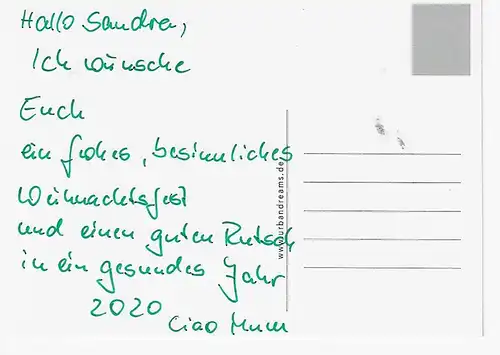 Hallo Sandra,
Ich wünsche
Euch
ein frohes, besinnliches
Weihnachtsfest
und einen guten Rutsch
in ein gesundes Jahr
2020
Ciao
www.urbandreams.de